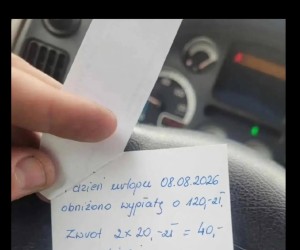 dzień urlopu 08.08.2026
obniżono wypłatę o 120,-zł,
Zwrot 2x20,-zł = 40,-